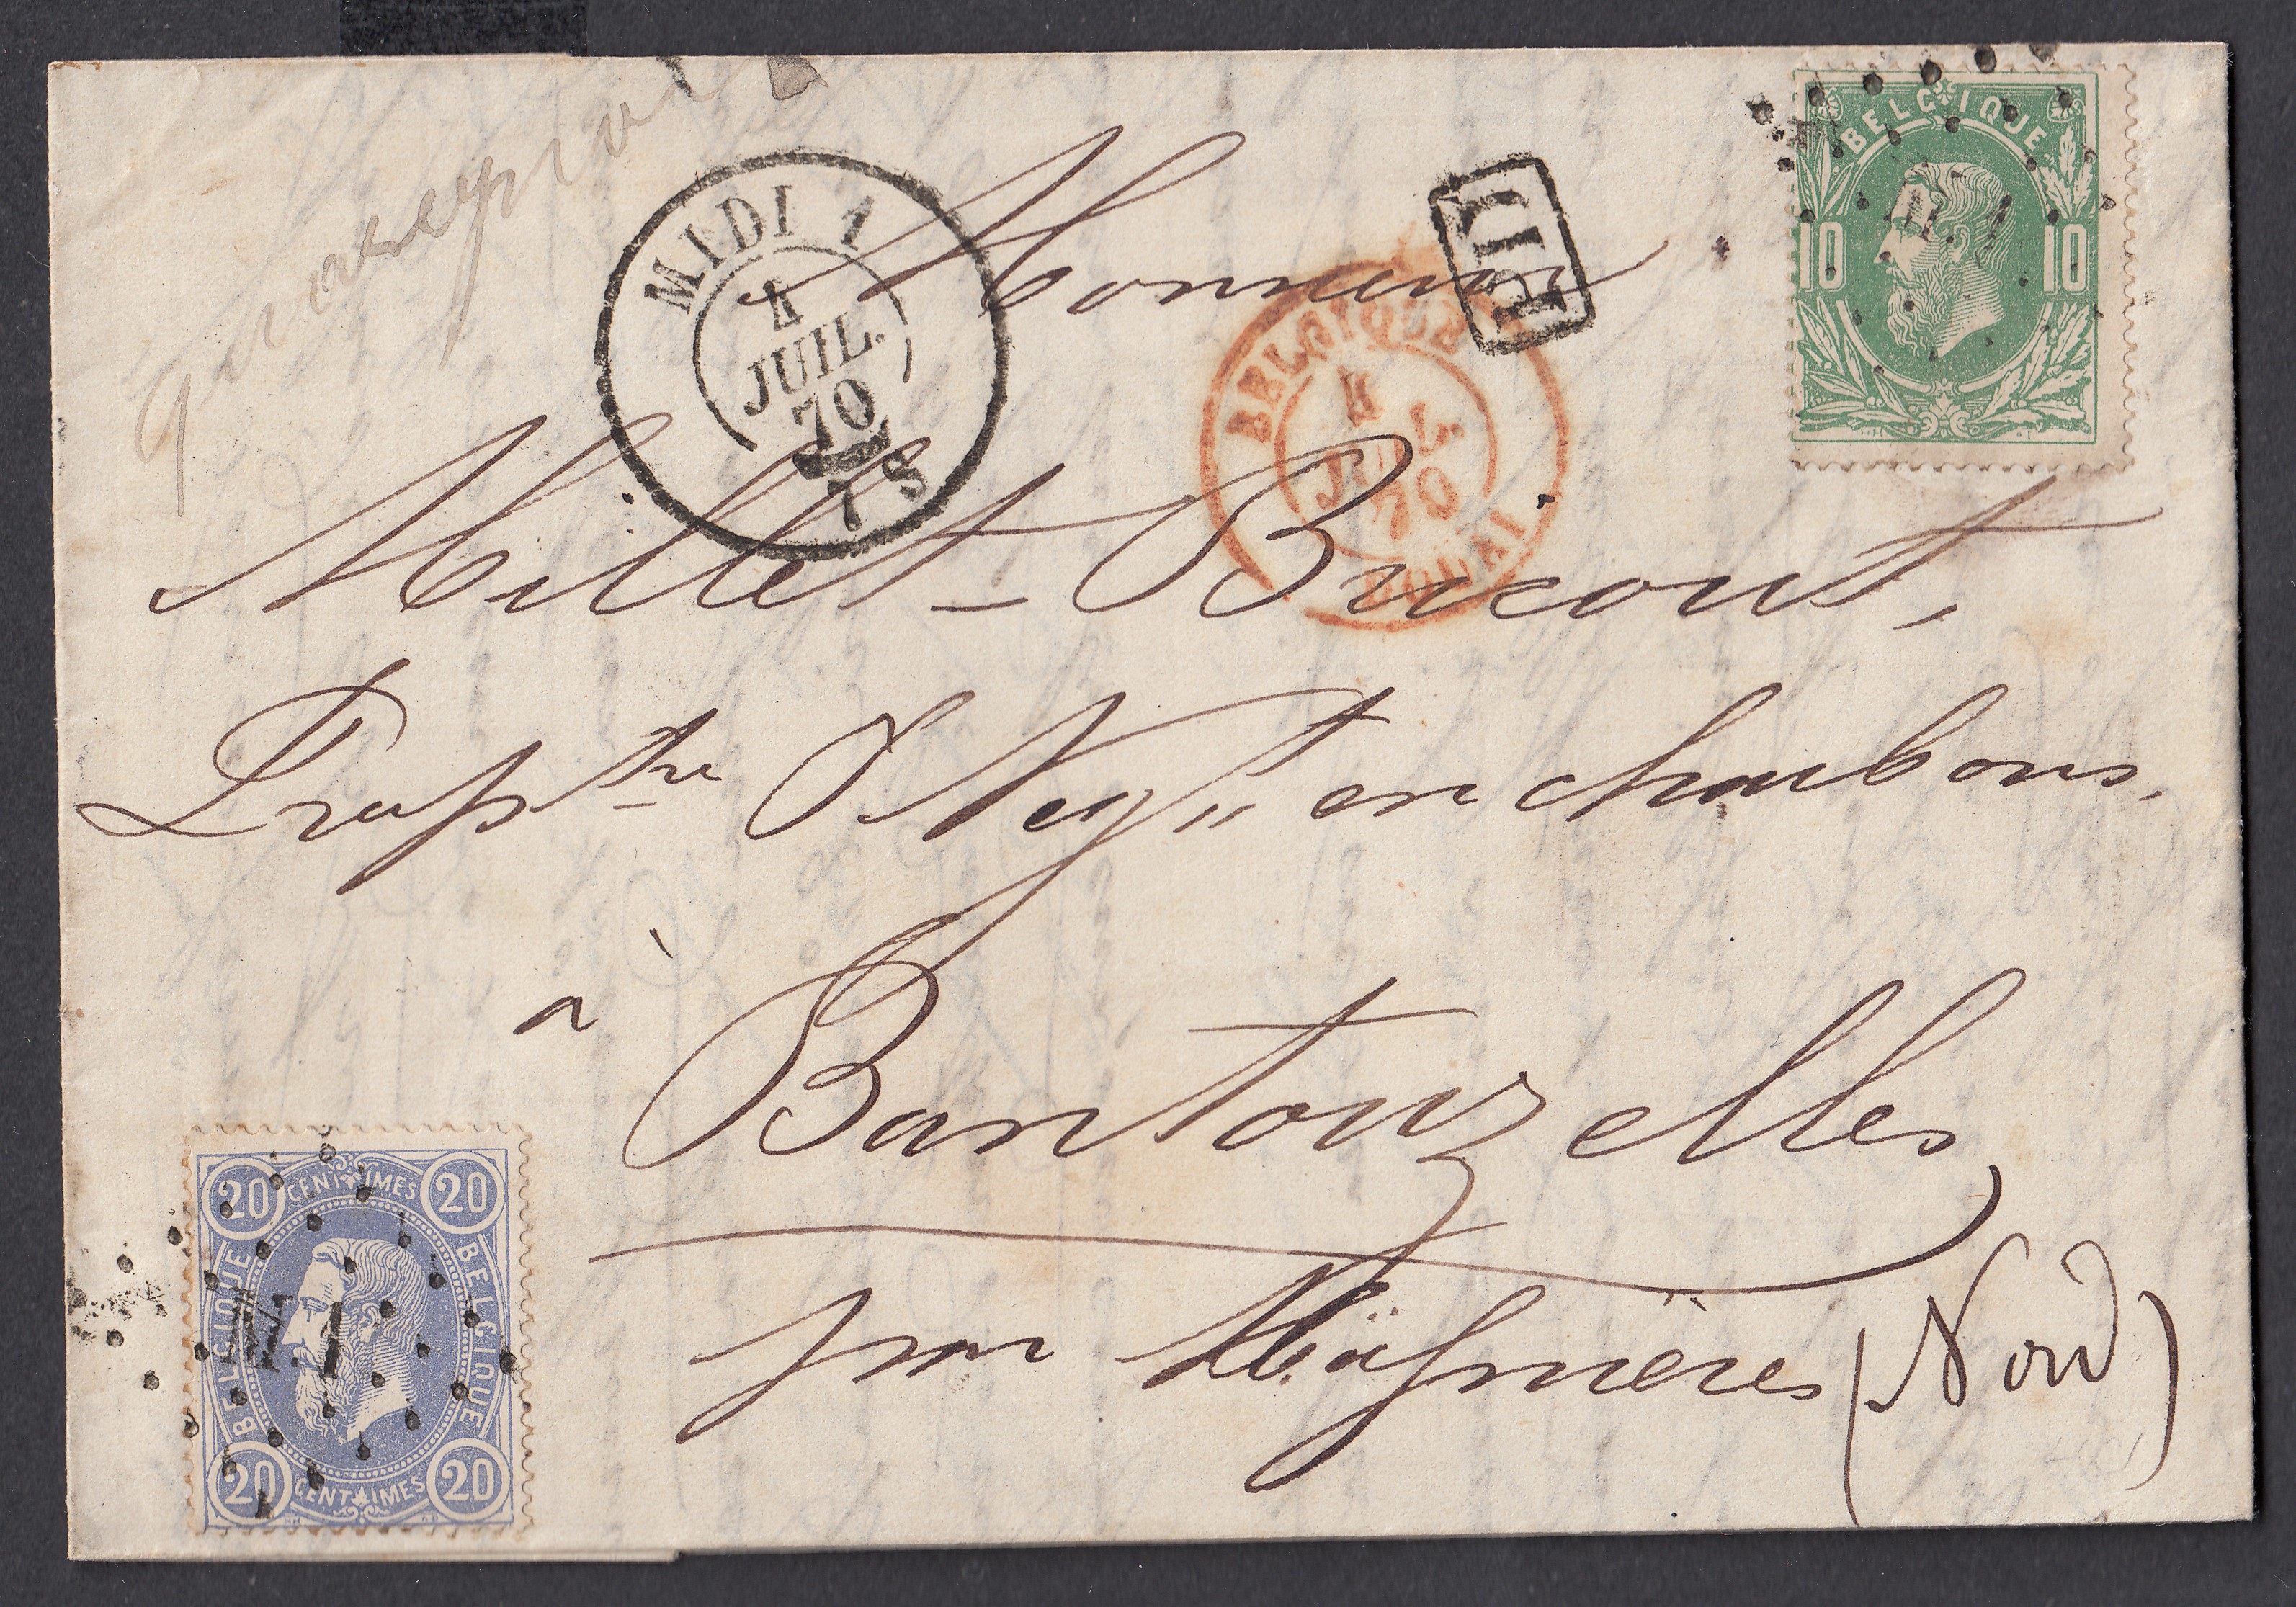 MIDI 1
4
JUIL.
70
7 S
BELGIQUE
4
JUIL.
70
DOUAI
PD
BELGIQUE
10 10
Monsieur
Millet-Bricout,
Prop.tre & Negt en charbons.
à
Bantouzelles
par Masnières (Nord)
20 CENTIMES 20
BELGIQUE BELGIQUE
M. 1
20 CENTIMES 20